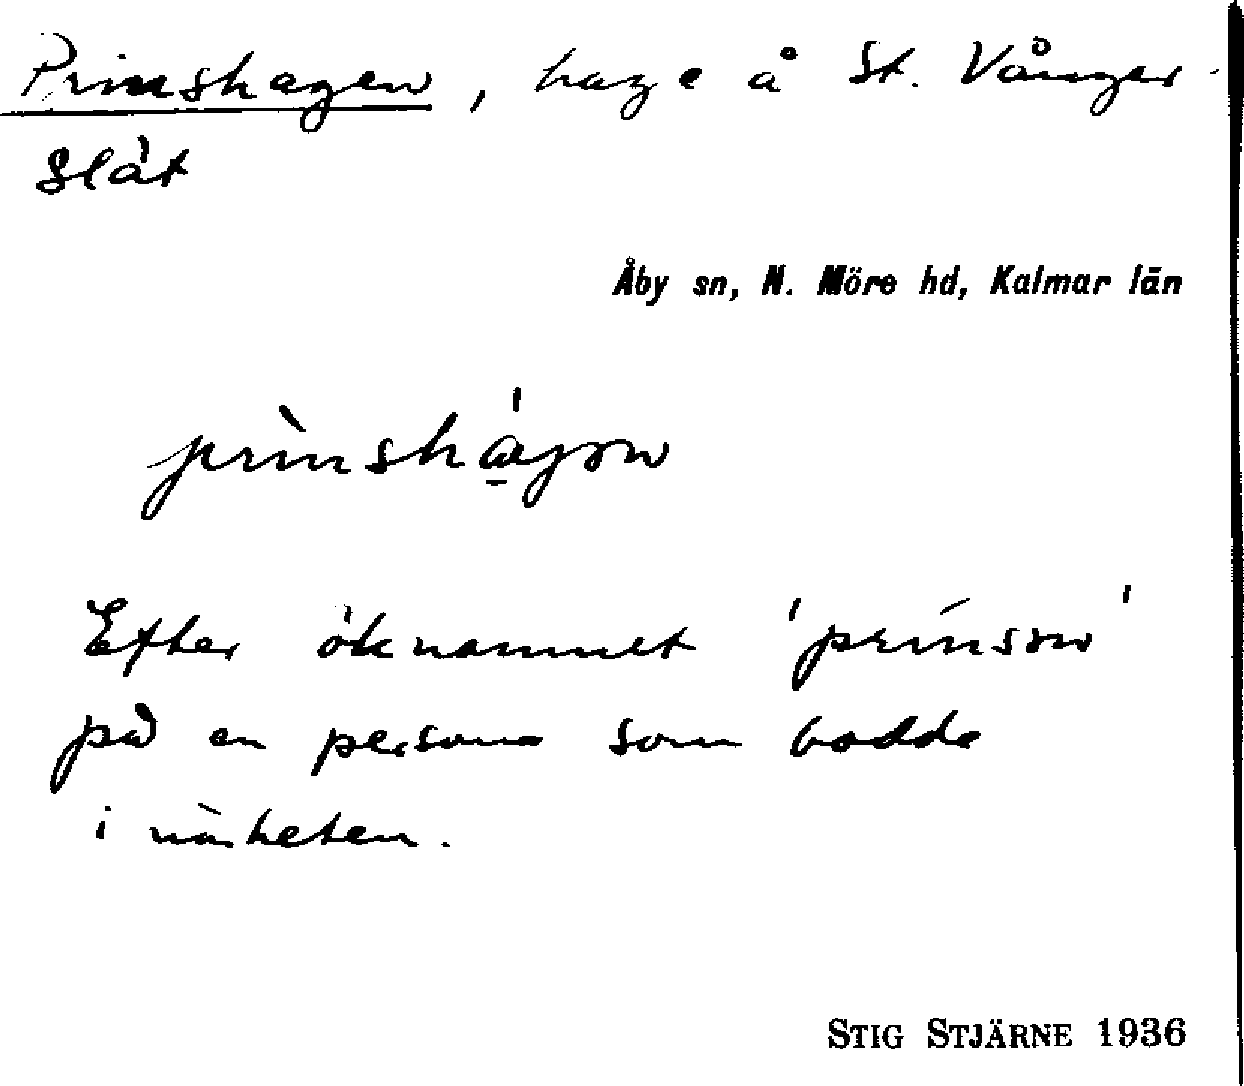 Prinshagen, hage å St. Vånger-
slät
Åby sn, N. Möre hd, Kalmar län
prìnshá̱gən
Efter öknamnet 'prínsən'
på en person som bodde
i närheten.
STIG STJÄRNE 1936